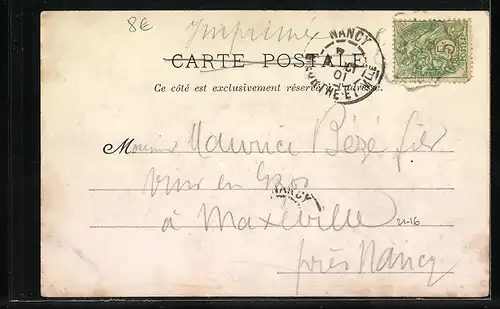 8€
Imprimé
CARTE POSTALE
Ce côté est exclusivement réservé à l'adresse.
NANCY
7
01
MEURTHE-ET-MLLE
5
Monsieur Maurice Bézé fils
vins en gros
NANCY
à Maxeville
21-16
près Nancy